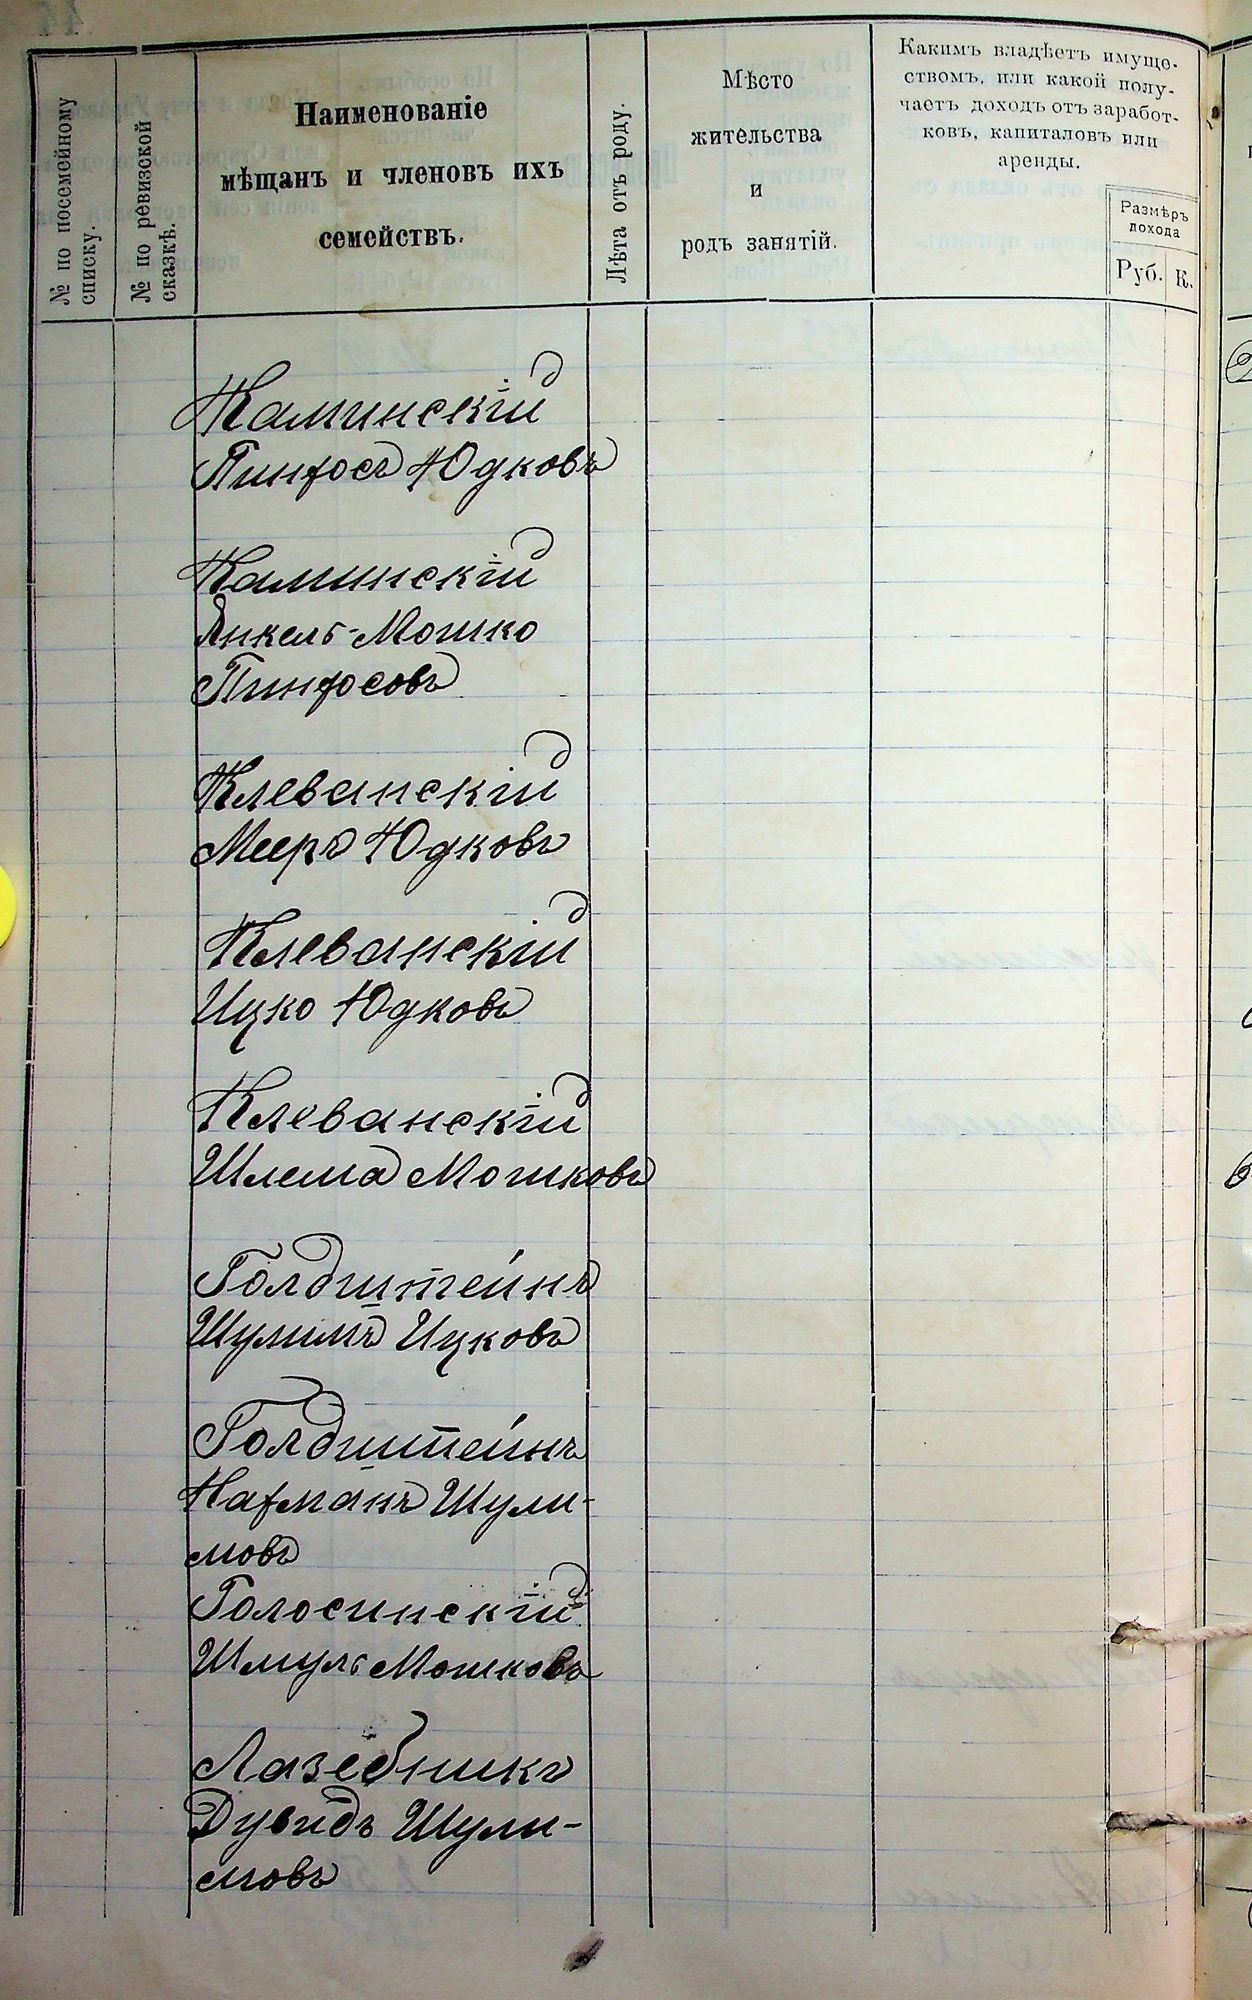 № по посемейному
списку.
№ по ревизской
сказкѣ.
Наименованіе
мѣщанъ и членовъ ихъ
семействъ.
Лѣта отъ роду.
Мѣсто
жительства
и
родъ занятій.
Какимъ владѣетъ имуще-
ствомъ, или какой полу-
чаетъ доходъ отъ заработ-
ковъ, капиталовъ или
аренды.
Размѣръ
дохода
Руб. К.
Каминскій
Пинхосъ Юдковъ
Каминскій
Янкель-Мошко
Пинхосовъ
Клеванскій
Мееръ Юдковъ
Клеванскій
Ицко Юдковъ
Клеванскій
Шлема Мошковъ
Голдштейнъ
Шулимъ Ицковъ
Голдштейнъ
Нахманъ Шули-
мовъ
Голосинскій
Шмуль Мошковъ
Лазебникъ
Дувидъ Шули-
мовъ